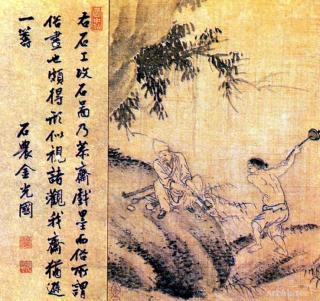 右石工攻石圖乃恭齋戲墨而俗所謂
俗畫也頗得形似視諸觀我齋猶遜
一籌
石農金光國